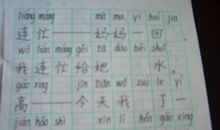 liǎng máng mā ma yì huí jiā
连忙 妈妈一回
wǒ lián máng gěi tā dào bēi shuǐ
我连忙给她 水。
gāo xìng jīn tiān wǒ zuò le yí
高 今天我 了一
jiàn hǎo shì xīn lǐ hěn gāo xìng